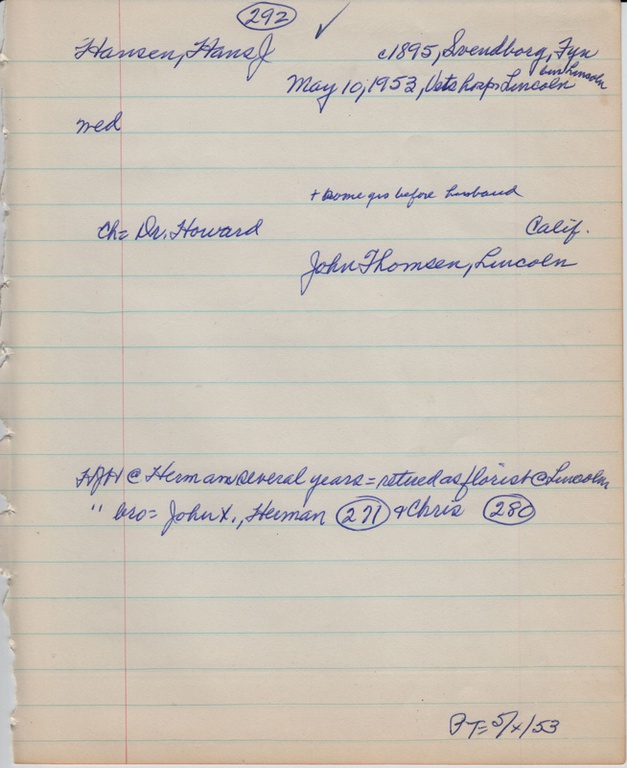 292 ✓
Hansen, Hans J c1895, Svendborg, Fyn
bur Lincoln
May 10, 1953, Vets hosp. Lincoln
wed
+ some yrs before husband
ch= Dr. Howard Calif.
John Thomsen, Lincoln
HJH @ Herman several years = retired as florist @ Lincoln
" bro= John X., Herman 271 & Chris 280
PT= 5/x/53